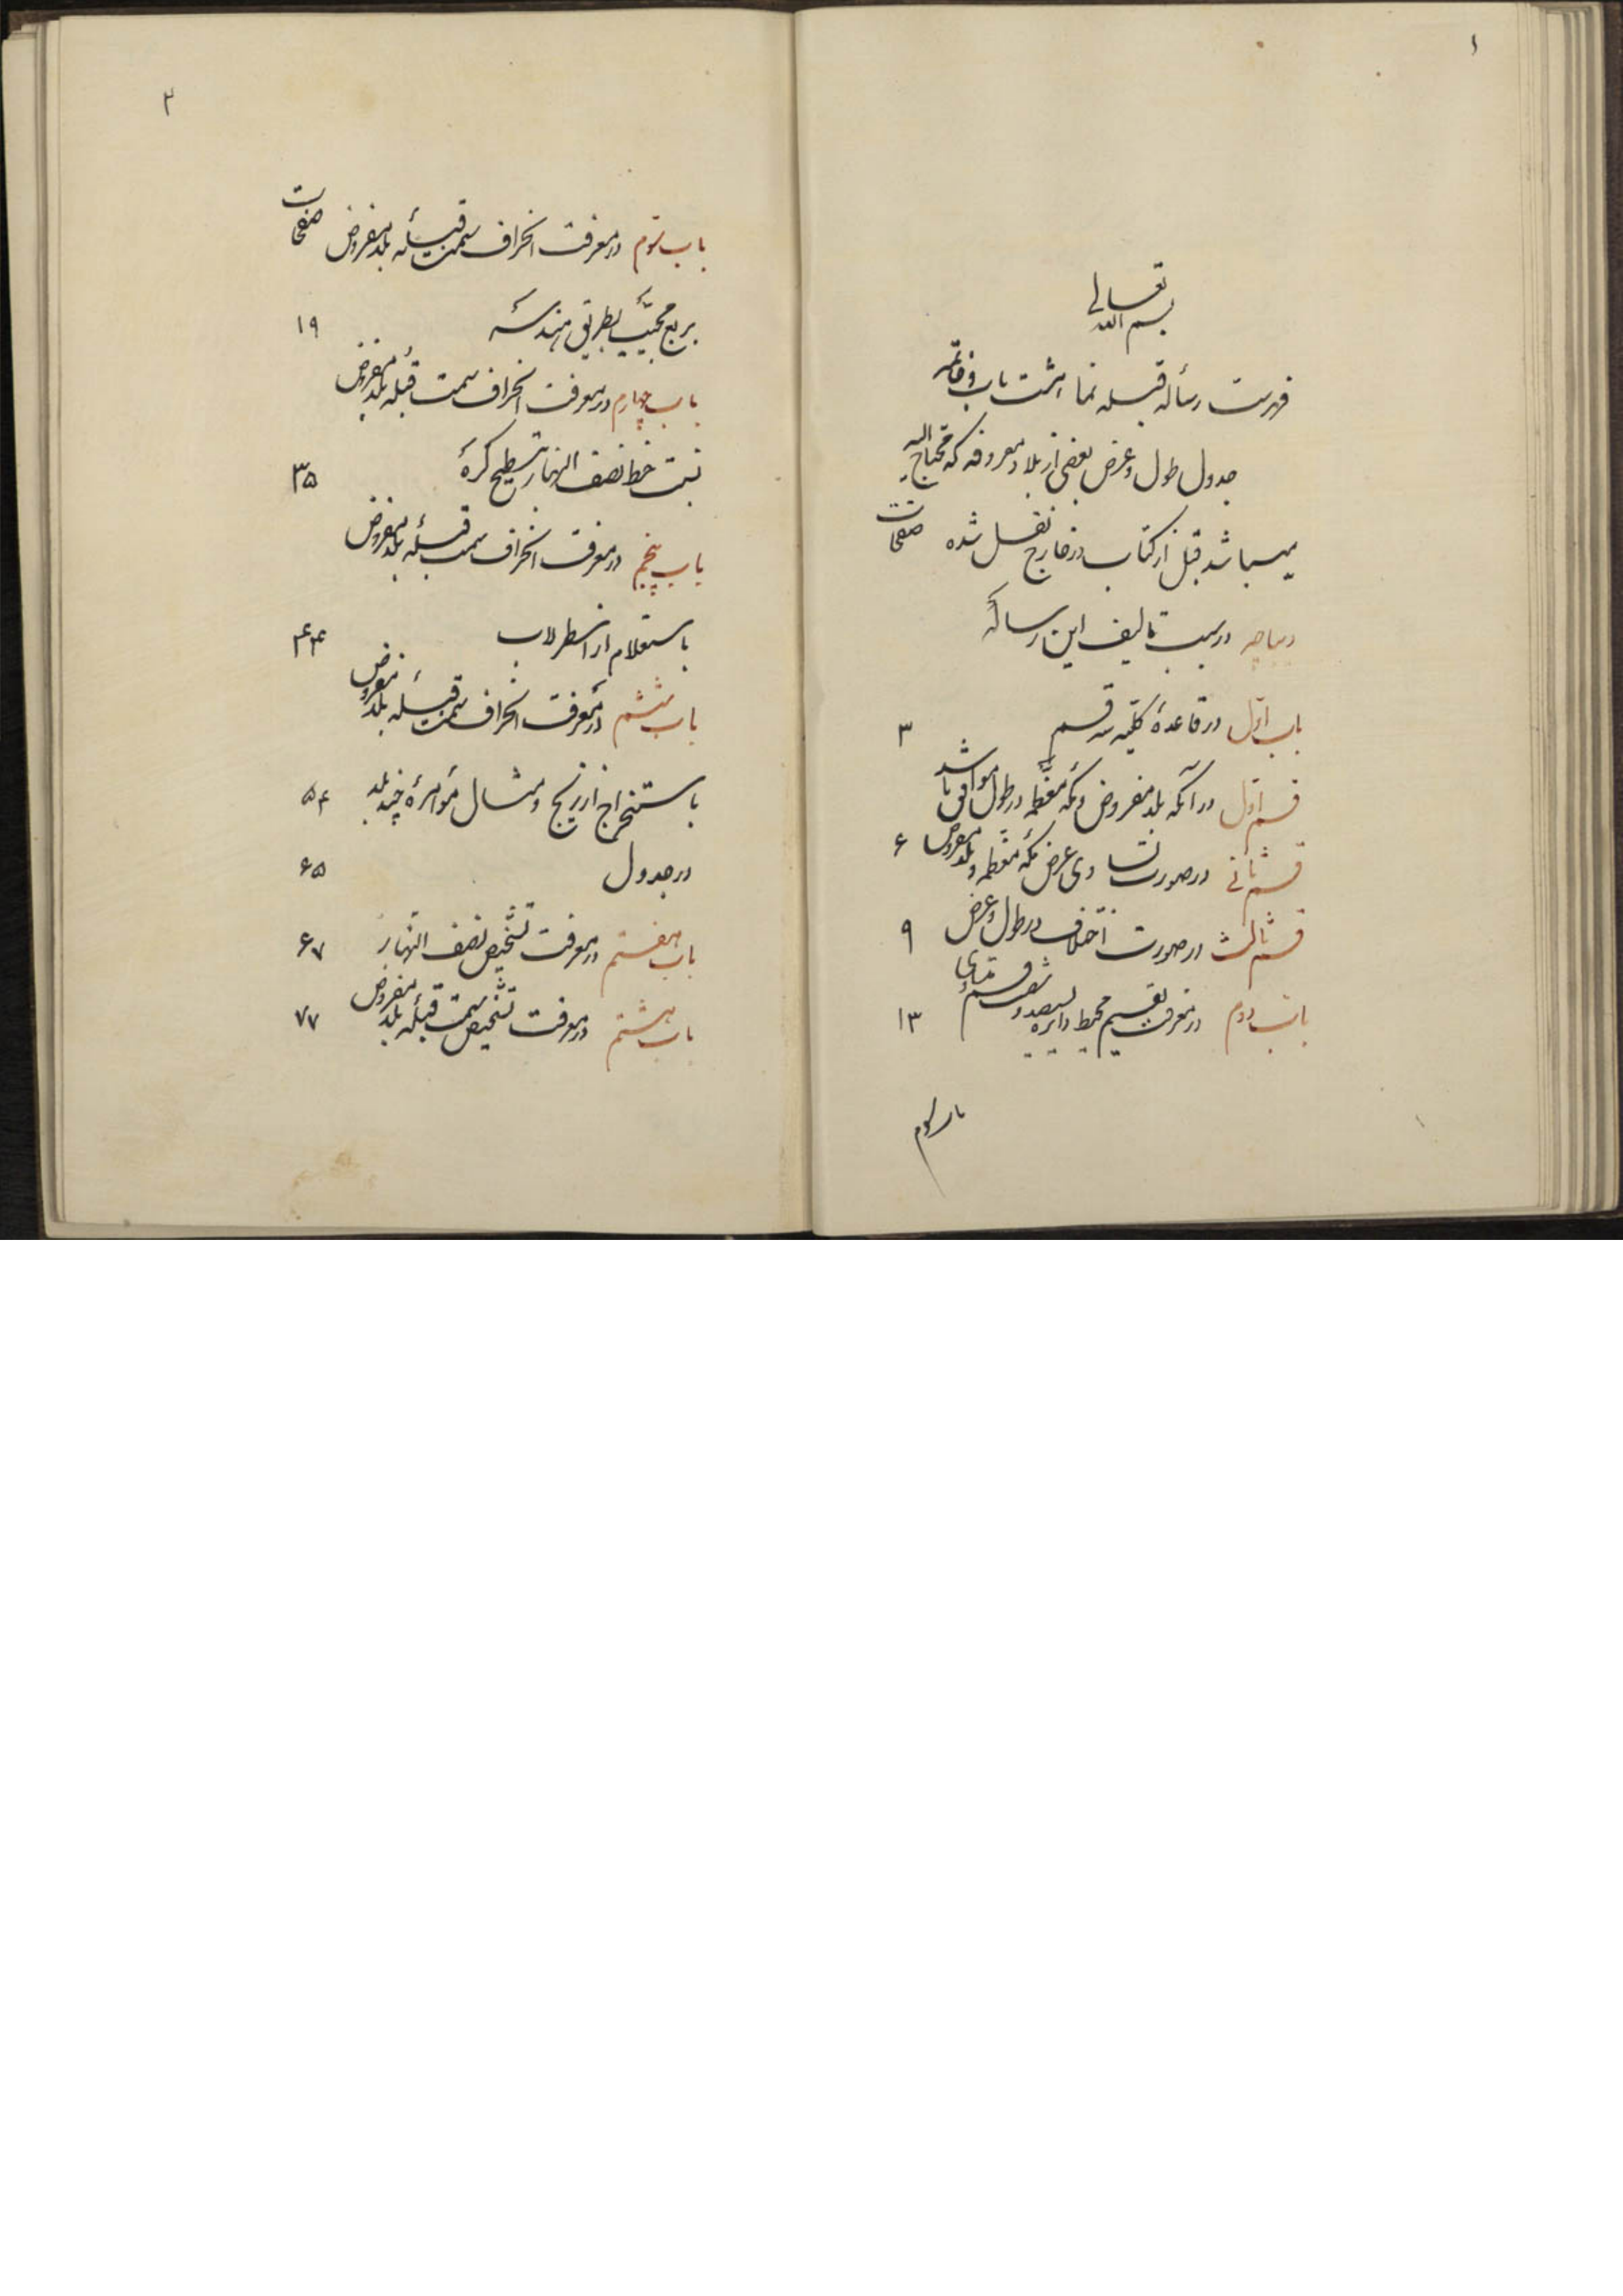 ۱
بسم الله تعالی
فهرست رساله قبله نما هشت باب و خاتمه
جدول طول و عرض بعضی از بلاد معروفه که محتاج الیه
میباشد قبل از کتاب در خارج نقل شده صفحات
دیباچه در سبب تألیف این رساله
باب اول در قاعدهٔ کلیّه سه قسم ۳
قسم اول در آنکه بلد مفروض و مکه معظّمه در طول موافق باشد
قسم ثانی در صورت تساوی عرض مکه معظّمه و بلد مفروض ۶
قسم ثالث در صورت اختلاف در طول و عرض ۹
باب دوم در معرفت تقسیم محیط دایره بسیصد و شصت قسم متساوی ۱۳
باب سوم
۲
باب سوم در معرفت انحراف سمت قبلهٔ بلد مفروض صفحات
بربع مجیّب بطریق هندسه ۱۹
باب چهارم در معرفت انحراف سمت قبلهٔ بلد مفروض
نسبت خط نصف النهار تسطیح کره ۳۵
باب پنجم در معرفت انحراف سمت قبلهٔ بلد مفروض
باستعلام از اسطرلاب ۴۴
باب ششم در معرفت انحراف سمت قبلهٔ بلد مفروض
باستخراج از زیج و مثال مؤامرهٔ چند بلد ۵۴
در جدول ۶۵
باب هفتم در معرفت تشخیص نصف النّهار ۶۷
باب هشتم در معرفت تشخیص سمت قبلهٔ بلد مفروض ۷۷